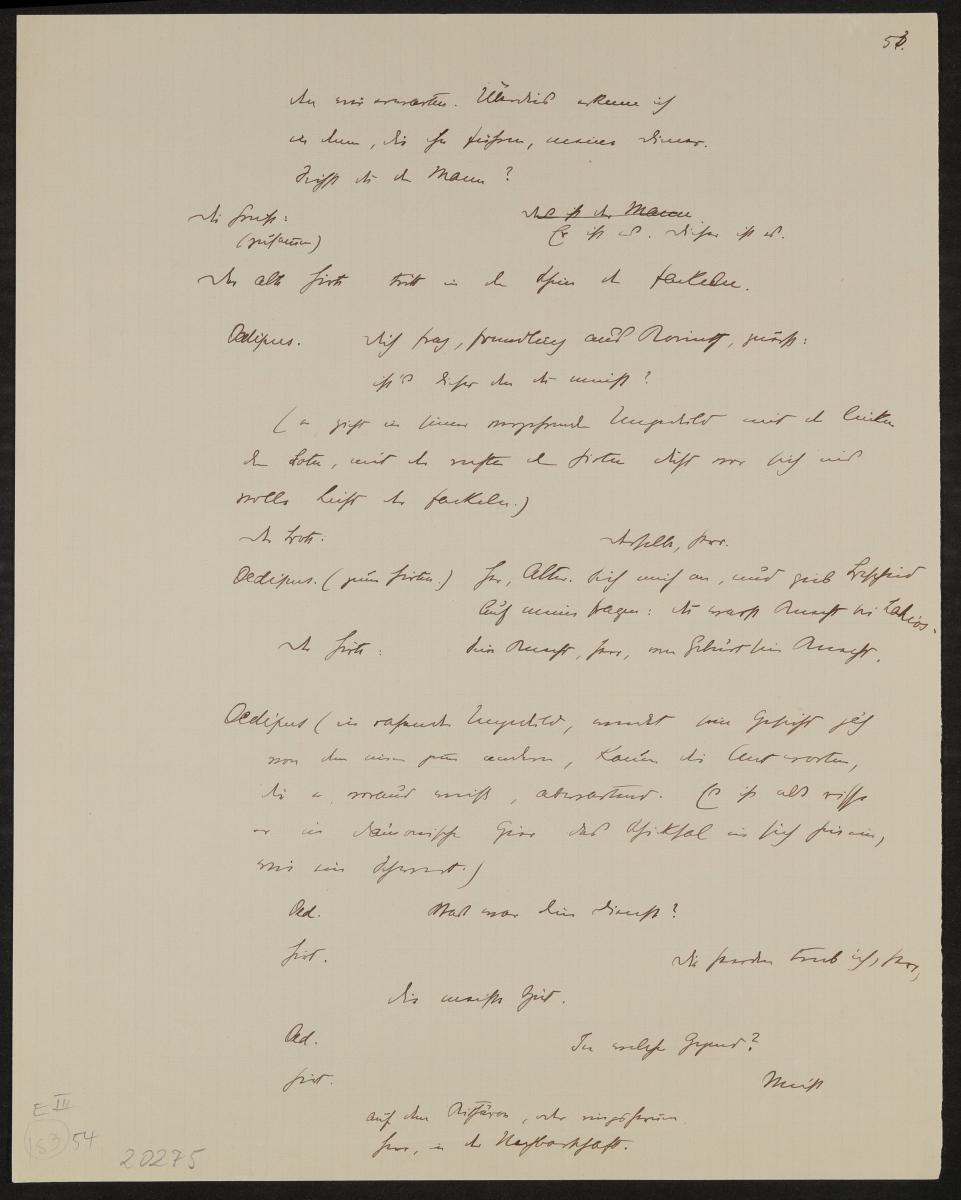 53.
den wir erwarten. Überdies erkenne ich
in denen, die ihn führen, meine Diener.
Triffst du den Mann?
Die Greise:
Das ist der Mann
(zusammen)
Er ist es. Dieser ist es.
Der alte Hirte tritt in den Schein der Fackeln.
Oedipus. Dich frag, Fremdling aus Korinth, zuerst:
ist's dieser den du meinst?
(er zieht in seiner Ungeduld mit der linken
den Boten, mit der rechten den Hirten dicht vor sich ins
volle Licht der Fackeln.)
Der Bote:
Derselbe, Herr.
Oedipus. (zum Hirten.) He, Alter. Sieh mich an, und gieb Bescheid
Auf meine Fragen: du warst Knecht bei Laïos.
Der Hirte: Sein Knecht, Herr, von Geburt sein Knecht.
Oedipus (in rasender Ungeduld, wendet sein Gesicht jäh
von dem einen zum andern, kaum die Antworten,
die er voraus weiß, abwartend. Es ist als risse
er in dämonischer Gier das Schiksal in sich hinein,
wie ein Schwert.)
Oed. Was war dein Dienst?
Hirt.
Die Heerden trieb ich, Herr,
die meiste Zeit.
Oed. In welcher Gegend?
Hirt. Meist
auf dem Kithäron, oder ringsherum
Herr, in der Nachbarschaft.
E III
153 54
20275